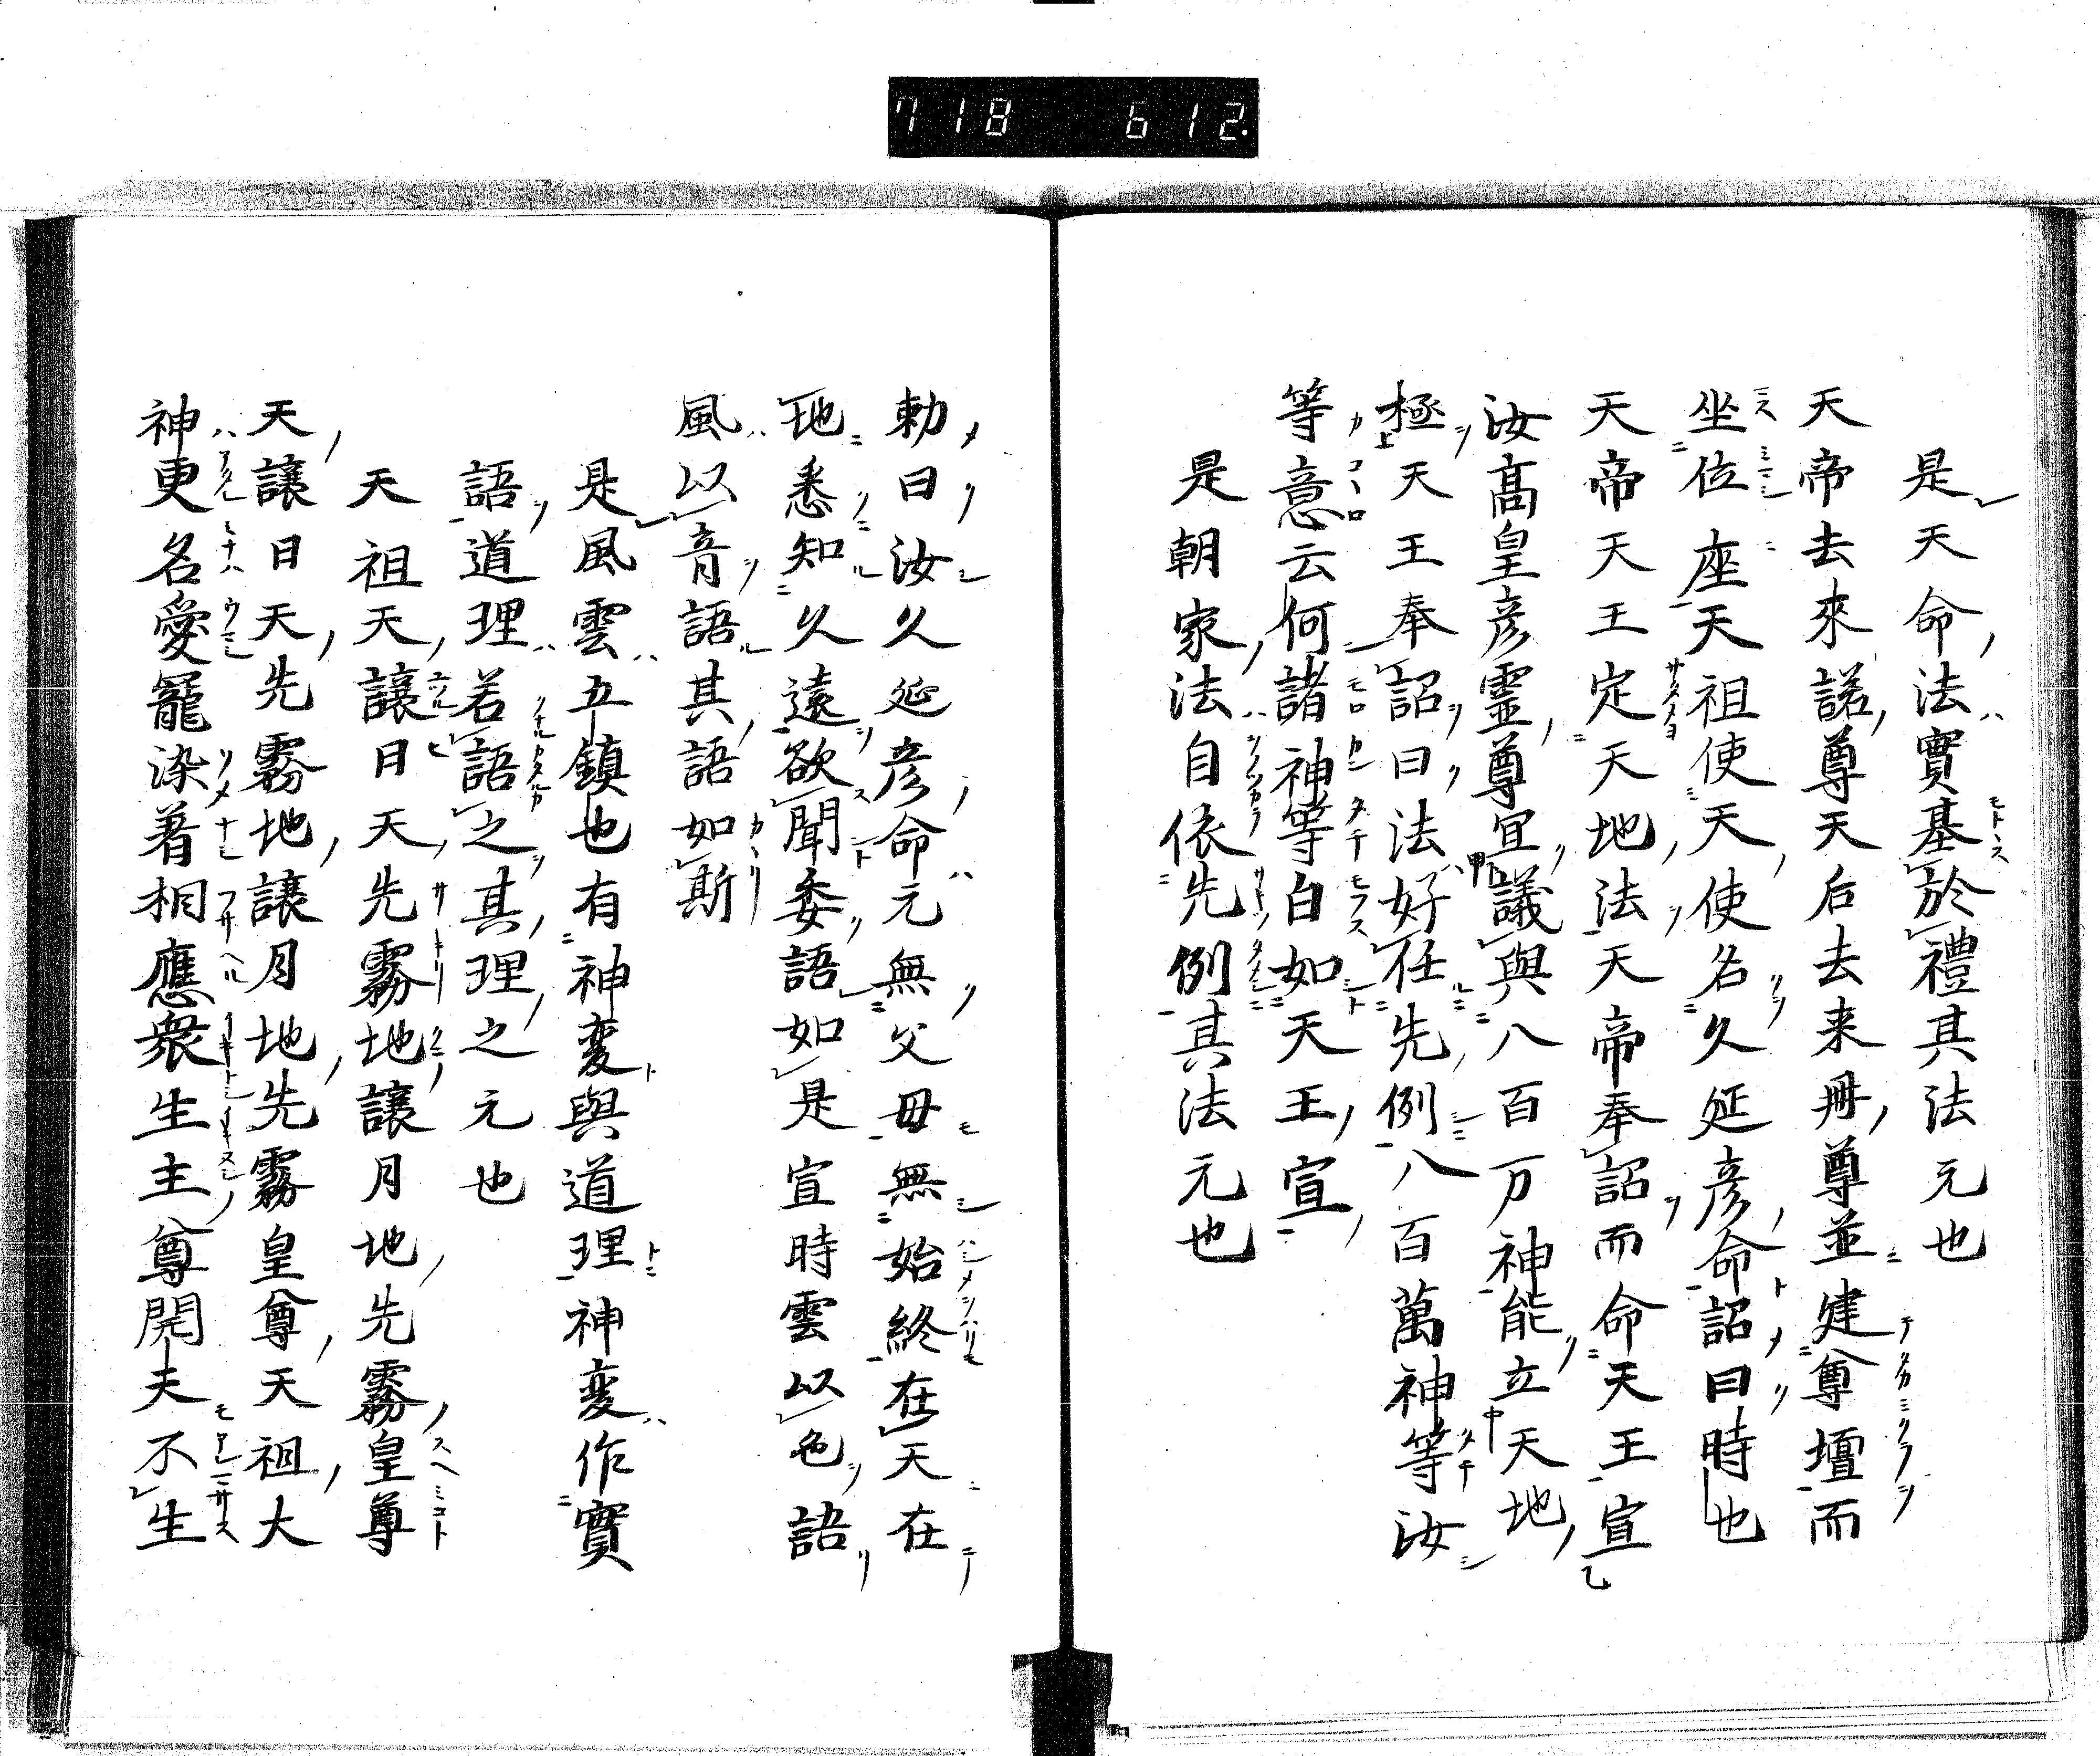 718 612.
是天命法實基於禮其法元也
天帝去來諾尊天后去来冊尊並建尊壇而
坐位座天祖使天使名久延彦命詔曰時也
天帝天王定天地法天帝奉詔而命天王宣
汝髙皇彦靈尊宜議與八百万神能立天地
極天王奉詔曰法好任先例八百萬神等汝
等意云何諸神等白如天王宣
是朝家法自依先例其法元也
勅曰汝久延彦命元無父毋無始終在天在
地悉知久遠欲聞委語如是宣時雲以色語
風以音語其語如斯
是風雲五鎮也有神変與道理神変作實
語道理若語之其理之元也
天祖天譲日天先霧地譲月地先霧皇尊
天譲日天先霧地譲月地先霧皇尊天祖大
神更名愛寵染着相應衆生主尊開夫不生